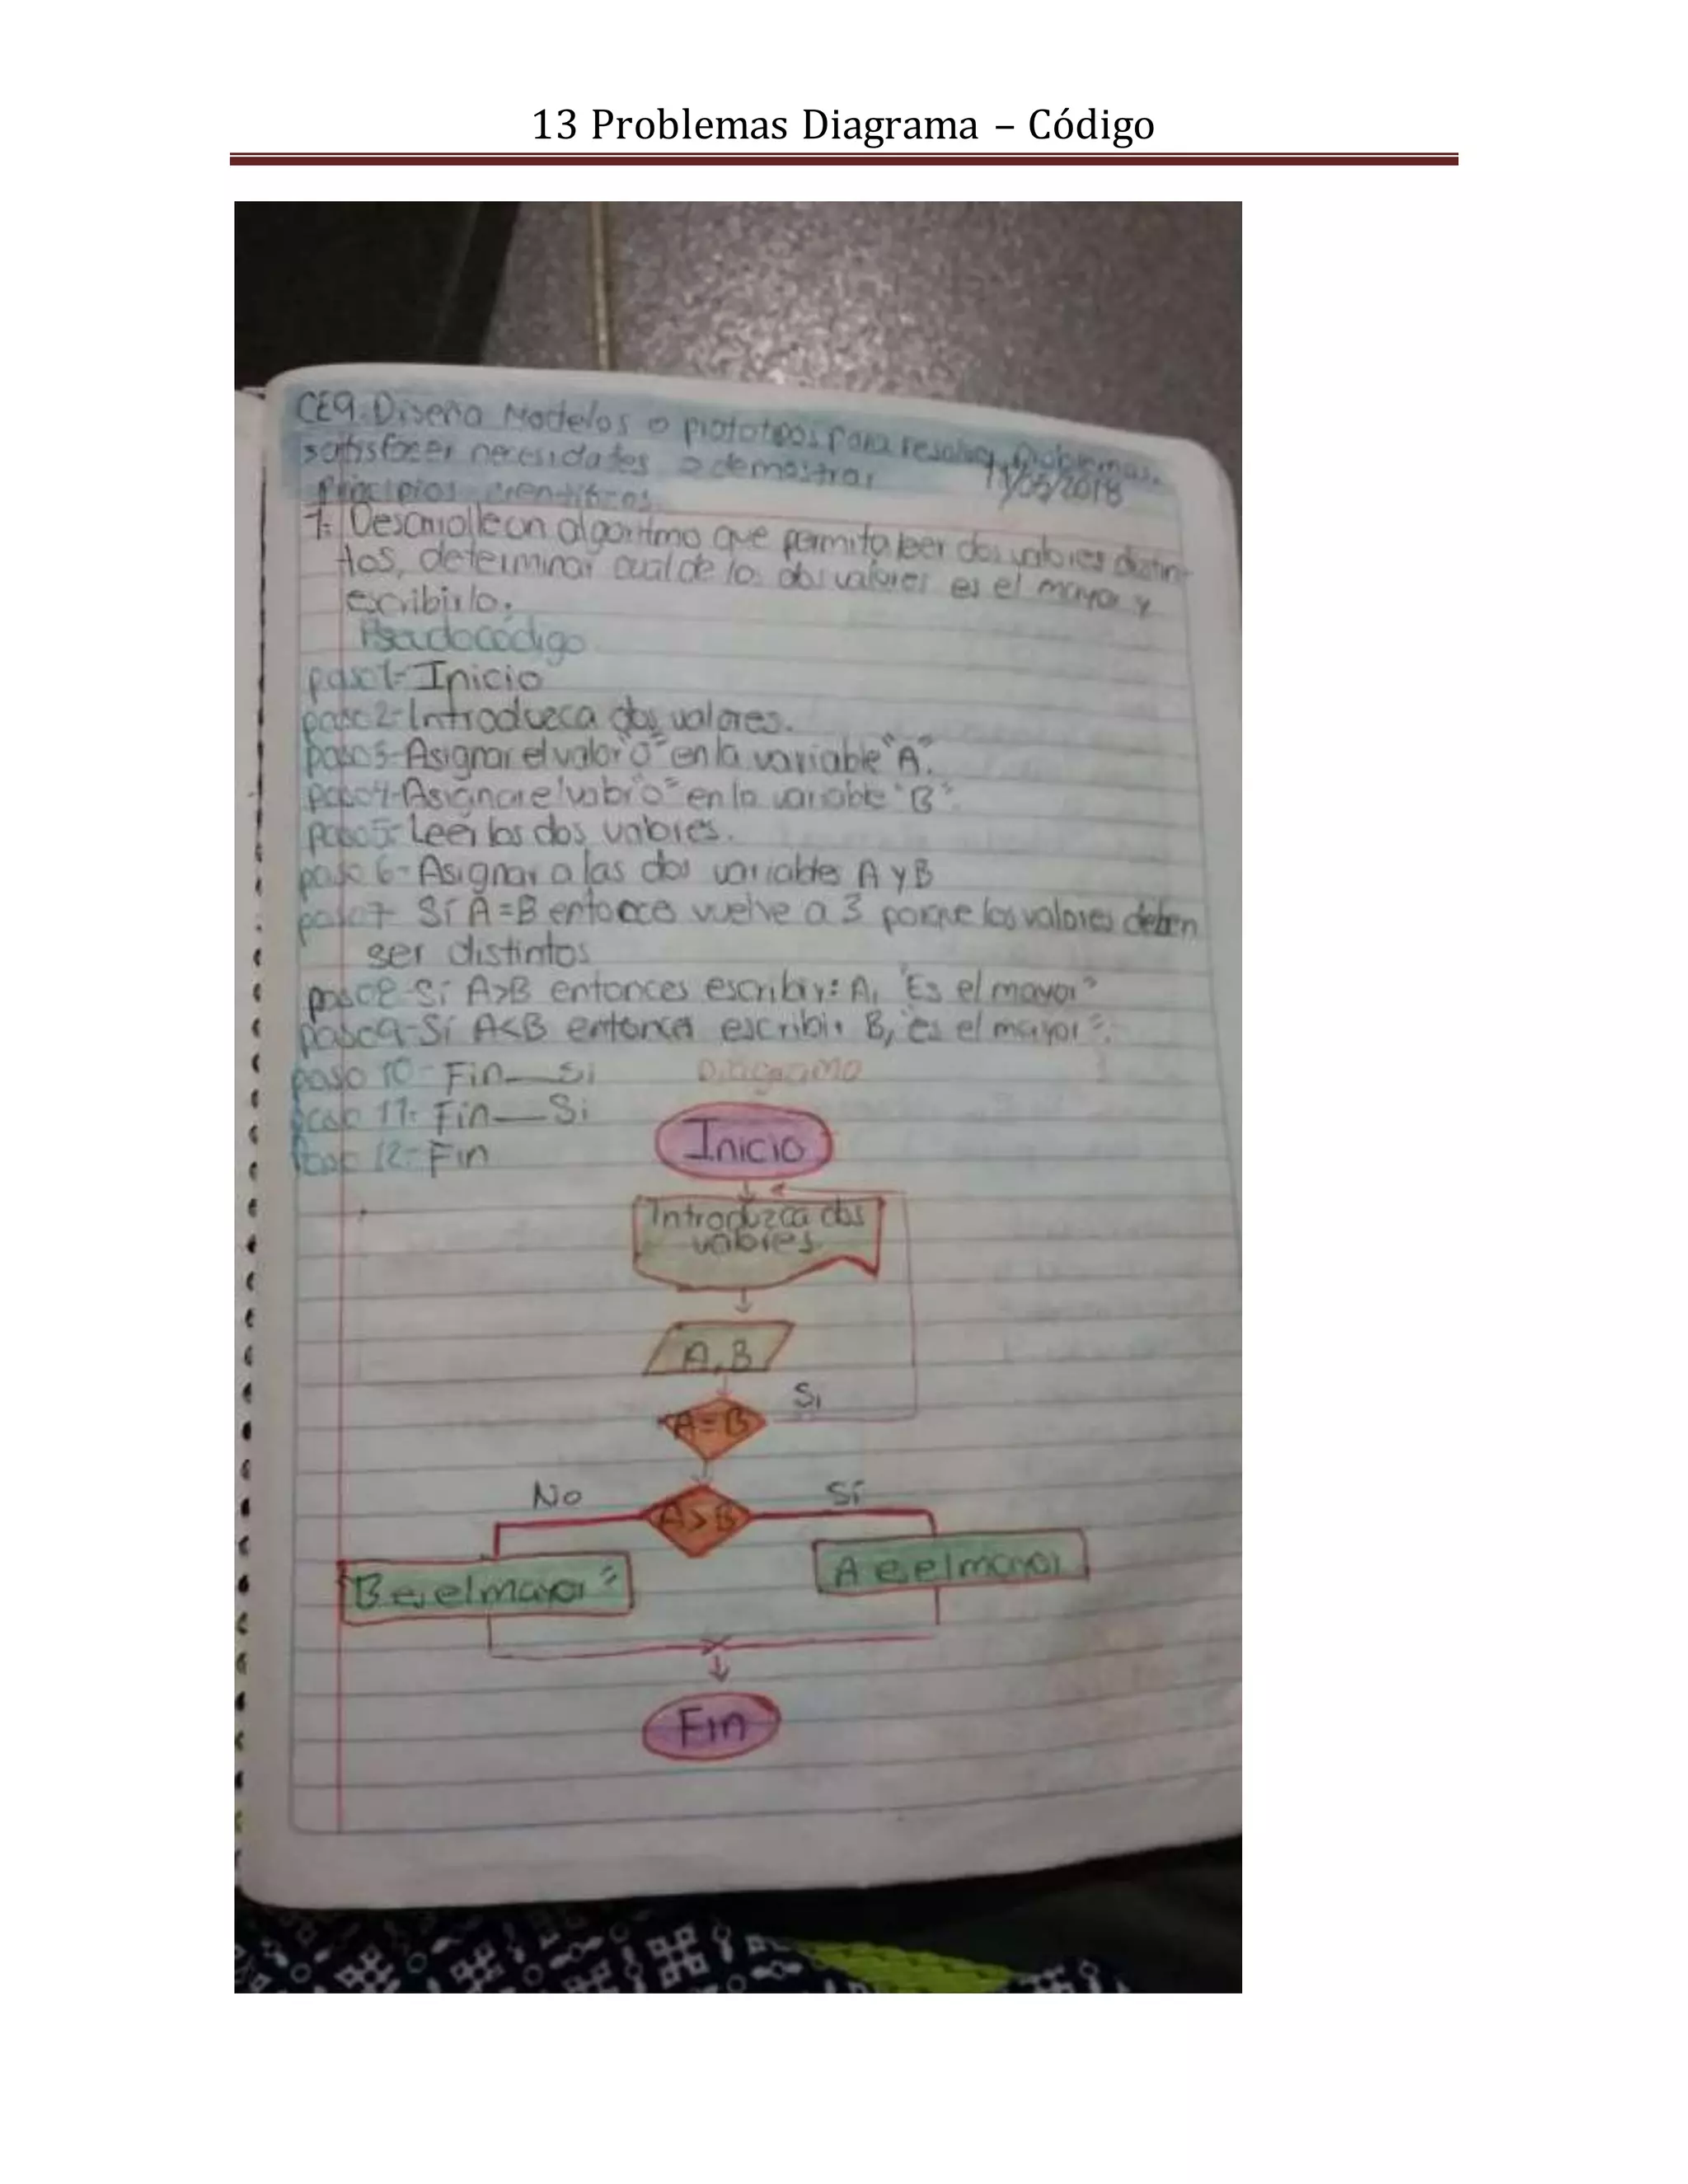 13 Problemas Diagrama – Código
CE9. Diseña Modelos o prototipos para resolver Problemas,
satisfacer necesidades o demostrar
principios científicos. /05/2018
1. Desarrolle un algoritmo que permita leer dos valores distin-
tos, determinar cual de los dos valores es el mayor y
escribirlo.
Pseudocódigo
paso 1- Inicio
paso 2- Introduzca dos valores.
paso 3- Asignar el valor "o" en la variable "A".
paso 4- Asignar el valor "o" en la variable "B".
paso 5- Leer los dos valores.
paso 6- Asignar a las dos variables A y B
paso 7- Sí A=B entonces vuelve a 3 porque los valores deben
ser distintos
paso 8- Sí A>B entonces escribir: A, "Es el mayor"
paso 9- Sí A<B entonces escribir B, "es el mayor".
paso 10- Fin__Si Diagrama
paso 11- Fin__Si
paso 12- Fin
Inicio
Introduzca dos
valores
A, B
Si
A=B
No Sí
A>B
A es el mayor
"B es el mayor"
Fin